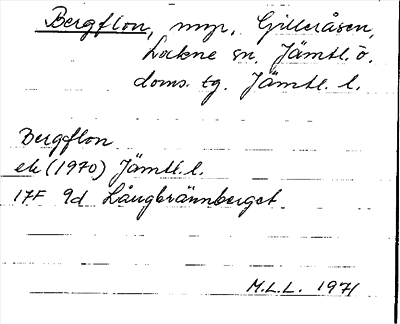 Bergflon, myr, Gilleråsen,
Lockne sn, Jämtl. ö.
doms. tg. Jämtl. l.
Bergflon
ek (1970) Jämtl. l.
17F 9d Långbrännberget
M.L.L. 1971